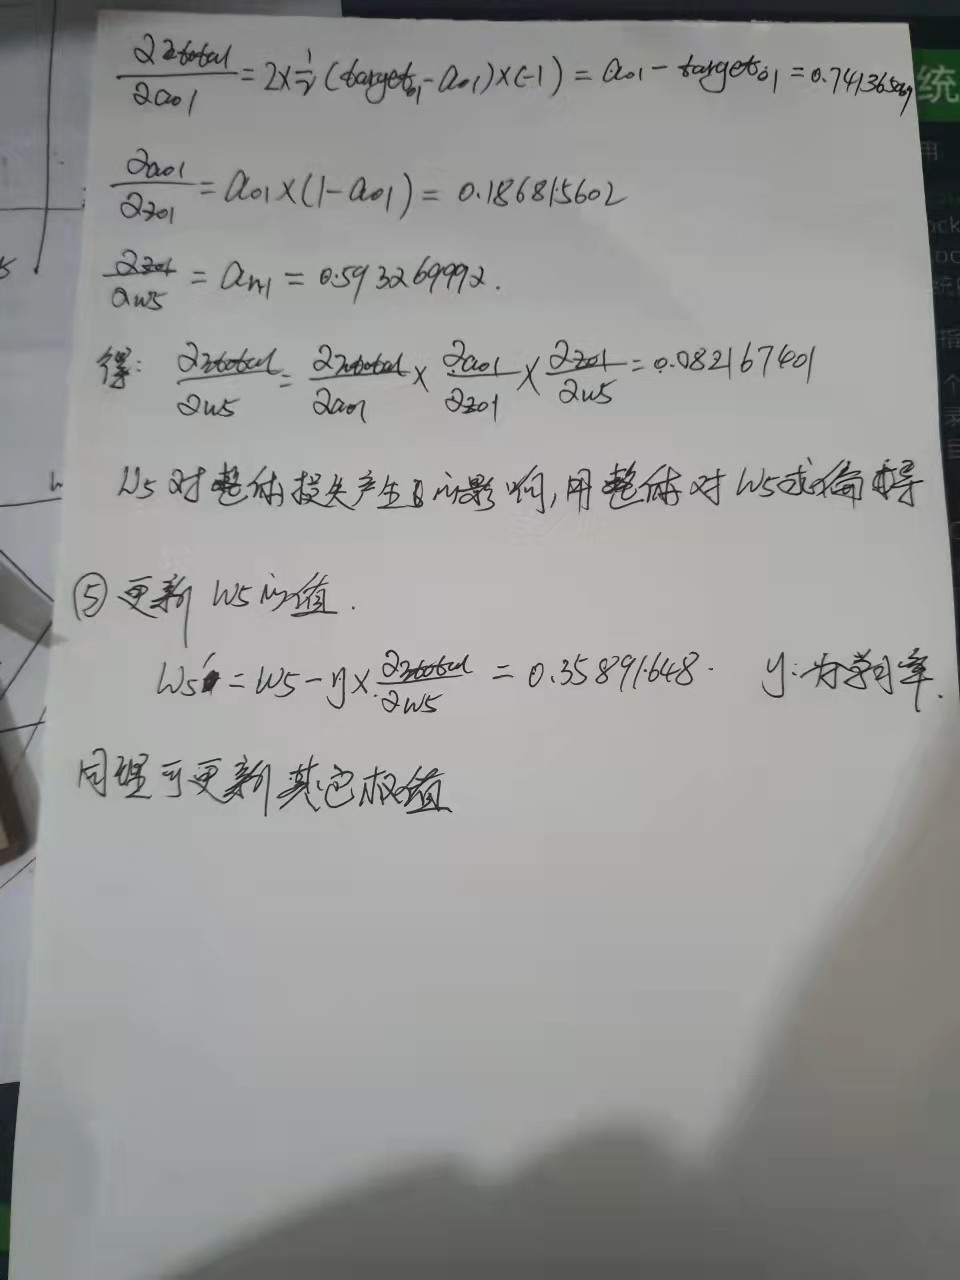 ∂Etotal/∂ao1 = 2×1/2 (targeto1 - ao1)×(-1) = ao1 - targeto1 = 0.74136507
∂ao1/∂zo1 = ao1×(1-ao1) = 0.186815602
∂zo1/∂w5 = ah1 = 0.593269992.
得: ∂Etotal/∂w5 = ∂Etotal/∂ao1 × ∂ao1/∂zo1 × ∂zo1/∂w5 = 0.082167401
W5对整体损失产生的影响,用整体对W5求偏导
⑤更新W5的值.
W5' = W5 - y × ∂Etotal/∂w5 = 0.35891648. y:为学习率.
同理可更新其它权值
统
用